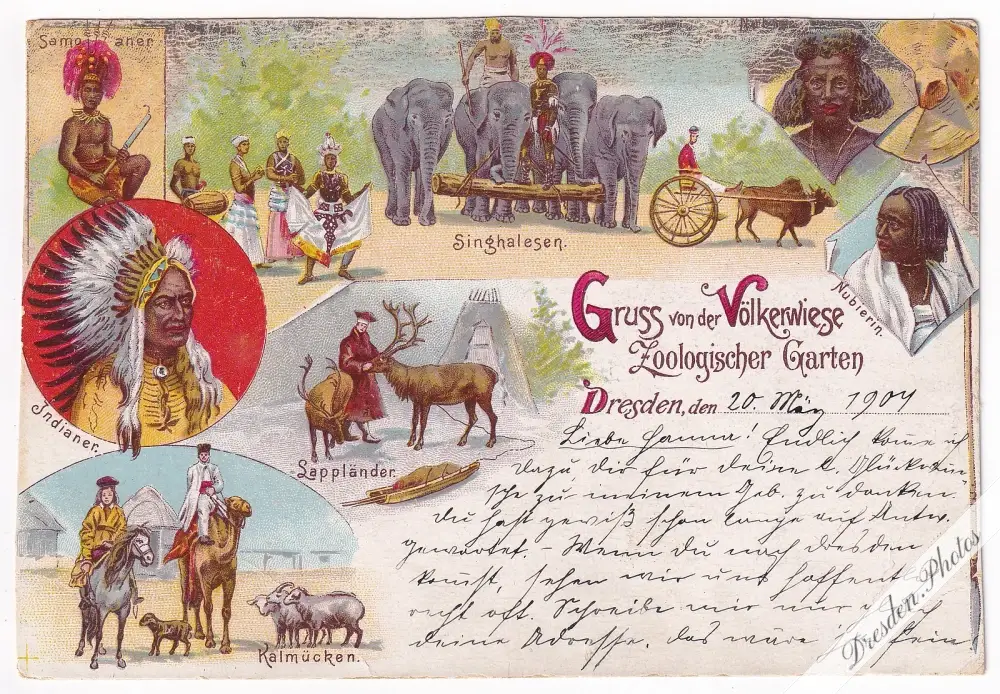 Samoaner
Singhalesen.
Nubierin.
Gruss von der Völkerwiese
Zoologischer Garten
Dresden, den 20. März 1904
Indianer.
Lappländer.
Kalmücken.
Liebe Hanna! Endlich komme ich
dazu, dir für deine l. Glückwün-
sche zu meinem Geb. zu danken.
Du hast gewiß schon lange auf Antw.
gewartet. – Wenn du nach Dresden
kommst, sehen wir uns hoffentl.
recht oft. Schreibe mir nur
deine Adresse. das wäre fein.
Dresden.Photos